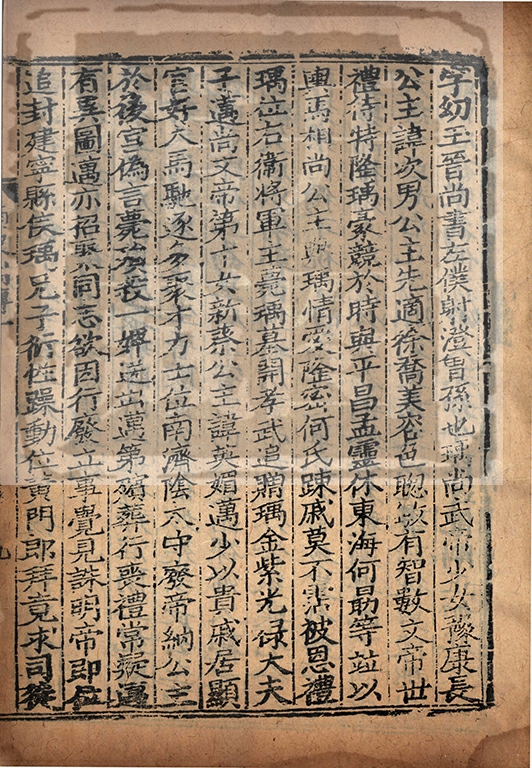 字幼玉晉尚書左僕射澄曾孫也瑀尚武帝少女豫康長
公主諱次男公主先適徐喬美容色聰敏有智數文帝世
禮待特隆瑀豪競於時與平昌孟靈休東海何勗等並以
輿馬相尚公主與瑀情愛隆密何氏踈戚莫不霑被恩禮
瑀位右衛將軍主薨瑀墓開孝武追贈瑀金紫光祿大夫
子邁尚文帝第十女新蔡公主諱英媚邁少以貴戚居顯
宦好犬馬馳逐多聚才力士位南濟陰太守廢帝納公主
於後宮偽言薨殂殺一婢送出邁第殯葬行喪禮常疑邁
有異圖邁亦招聚同志欲因行廢立事覺見誅明帝即位
追封建寧縣侯瑀兄子衍性躁動位黃門郎拜竟求司徒
九